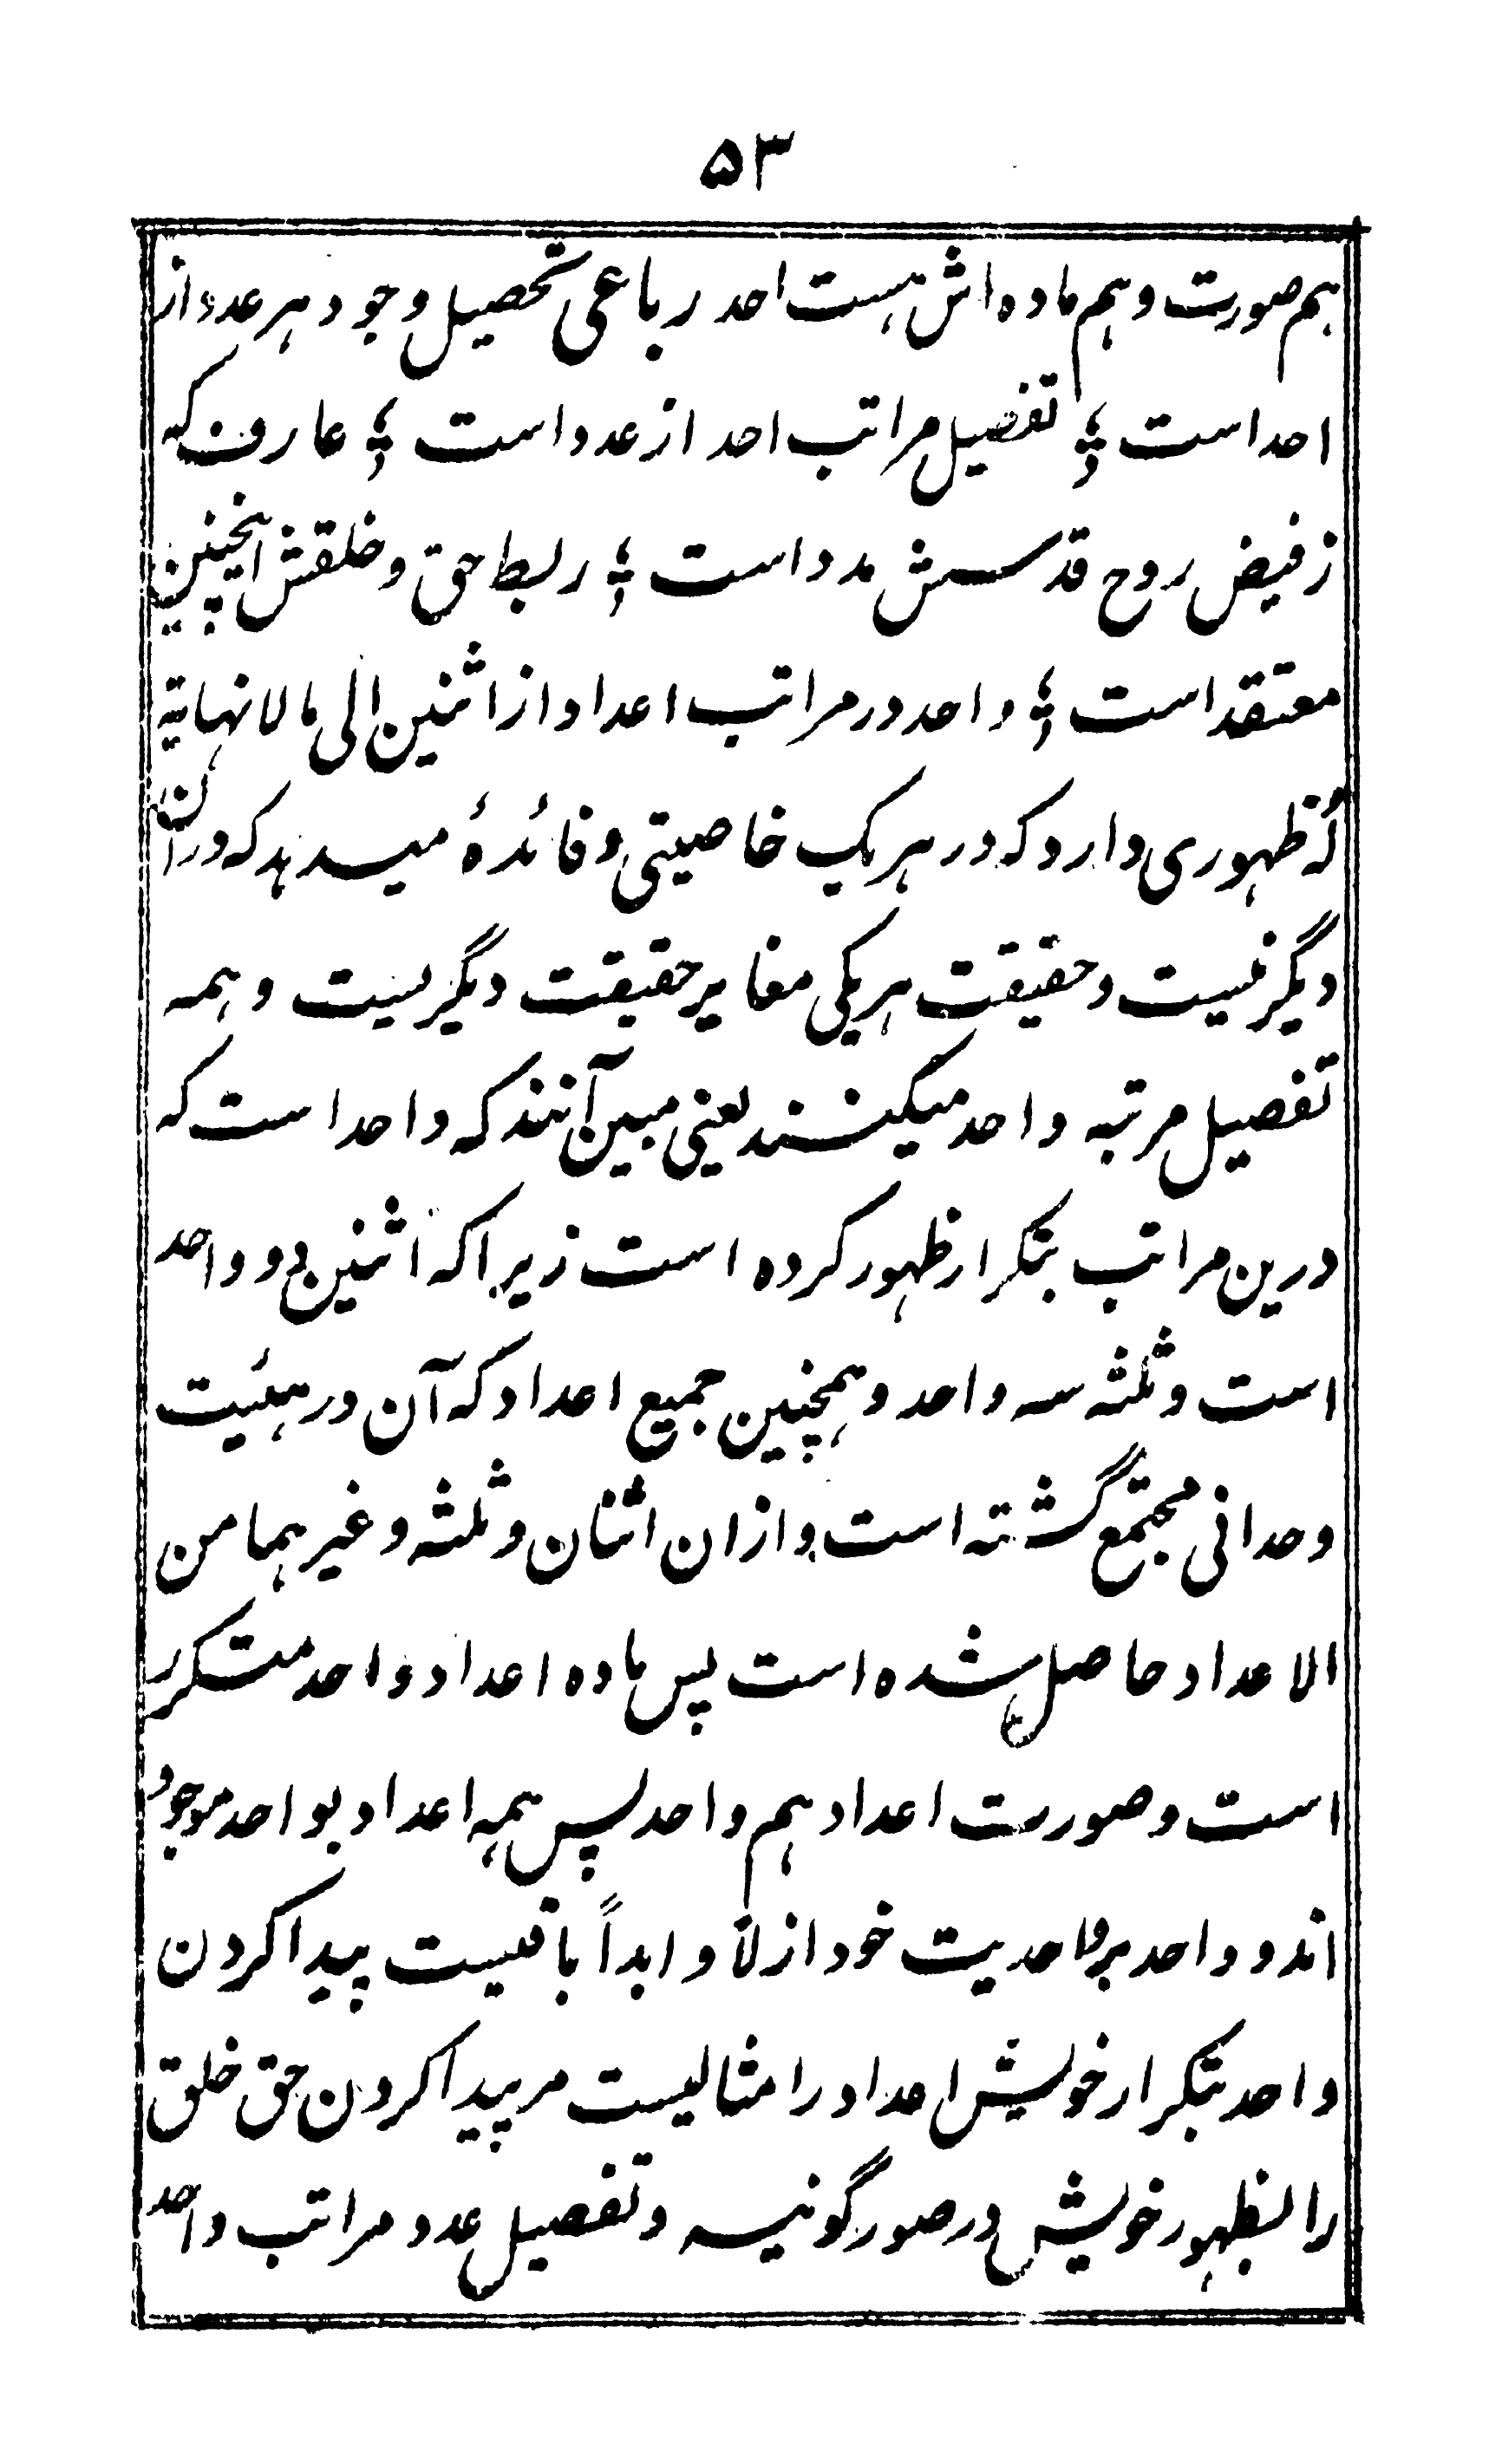 ۵۳
هم صورت و هم ماده اش هست احد رباعی تحصیل وجود هر عدد از
احد است ؛ تفصیل مراتب احد از عدد است ؛ عارف که
ز فیض روح قدسش مدد است ؛ ربط حق و خلقش اینچنین
معتقد است ؛ واحد در مراتب اعداد از اثنین الی مالانهایة
لهٔ ظهوری دارد که در هر یک خاصیتی و فائدهٔ میدهد که در ان
دیگر نیست و حقیقت هر یکی مغایر حقیقت دیگریست و همه
تفصیل مرتبه واحد میکنند یعنی مبین آنند که واحد است که
درین مراتب بتکرار ظهور کرده است زیرا که اثنین دو واحد
است و ثلثه سه واحد و همچنین جمیع اعداد که آن در هیئت
وحدانی مجتمع گشته است و ازان اثنان و ثلثه و غیرهما من
الاعداد حاصل شده است پس ماده اعداد واحد متکرر
است و صورت اعداد هم واحد پس همه اعداد بواحد موجود
اند و واحد بر واحدیت خود ازلاً و ابداً باقیست پیدا کردن
واحد بتکرار خویش اعداد را مثالیست مر پیدا کردن حق خلق
را بظهور خویش در صور گونیه و تفصیل عدد مراتب واحد